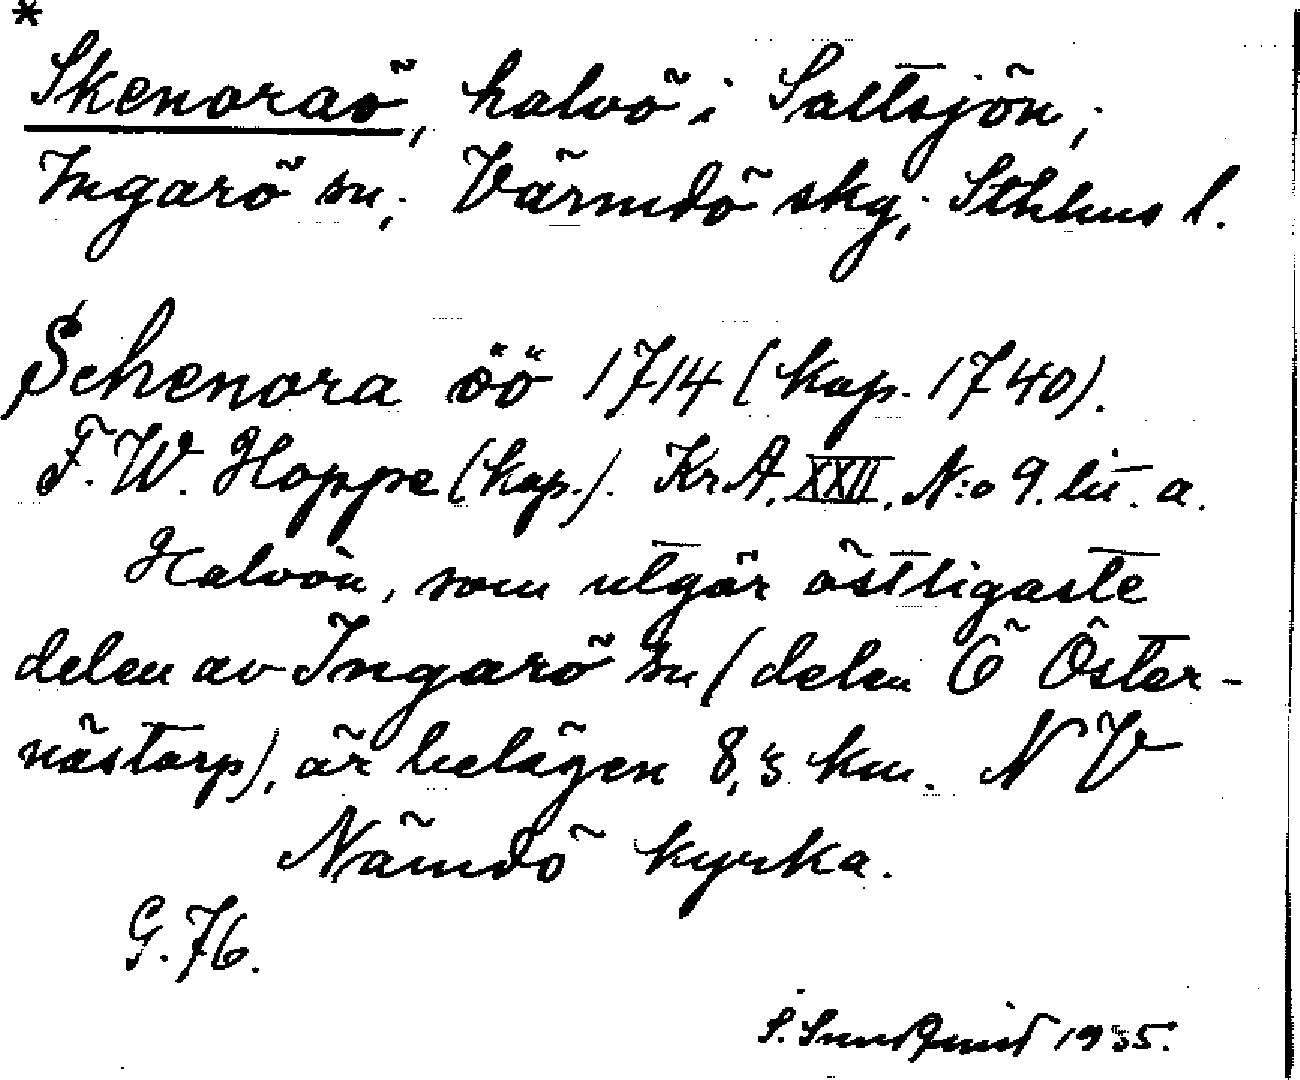 *
Skenoraö, halvö i Saltsjön,
Ingarö sn, Värmdö skg, Sthlms l.
Schenora öö 1714 (kop. 1740).
F.W. Hoppe (kop.). Kr.A. XXII. N:o 9. lit. a.
Halvön, som utgör östligaste
delen av Ingarö sn (delen Ö Öster-
nästorp), är belägen 8,5 km. NV
Nämdö kyrka.
G. 76.
S. 1935.